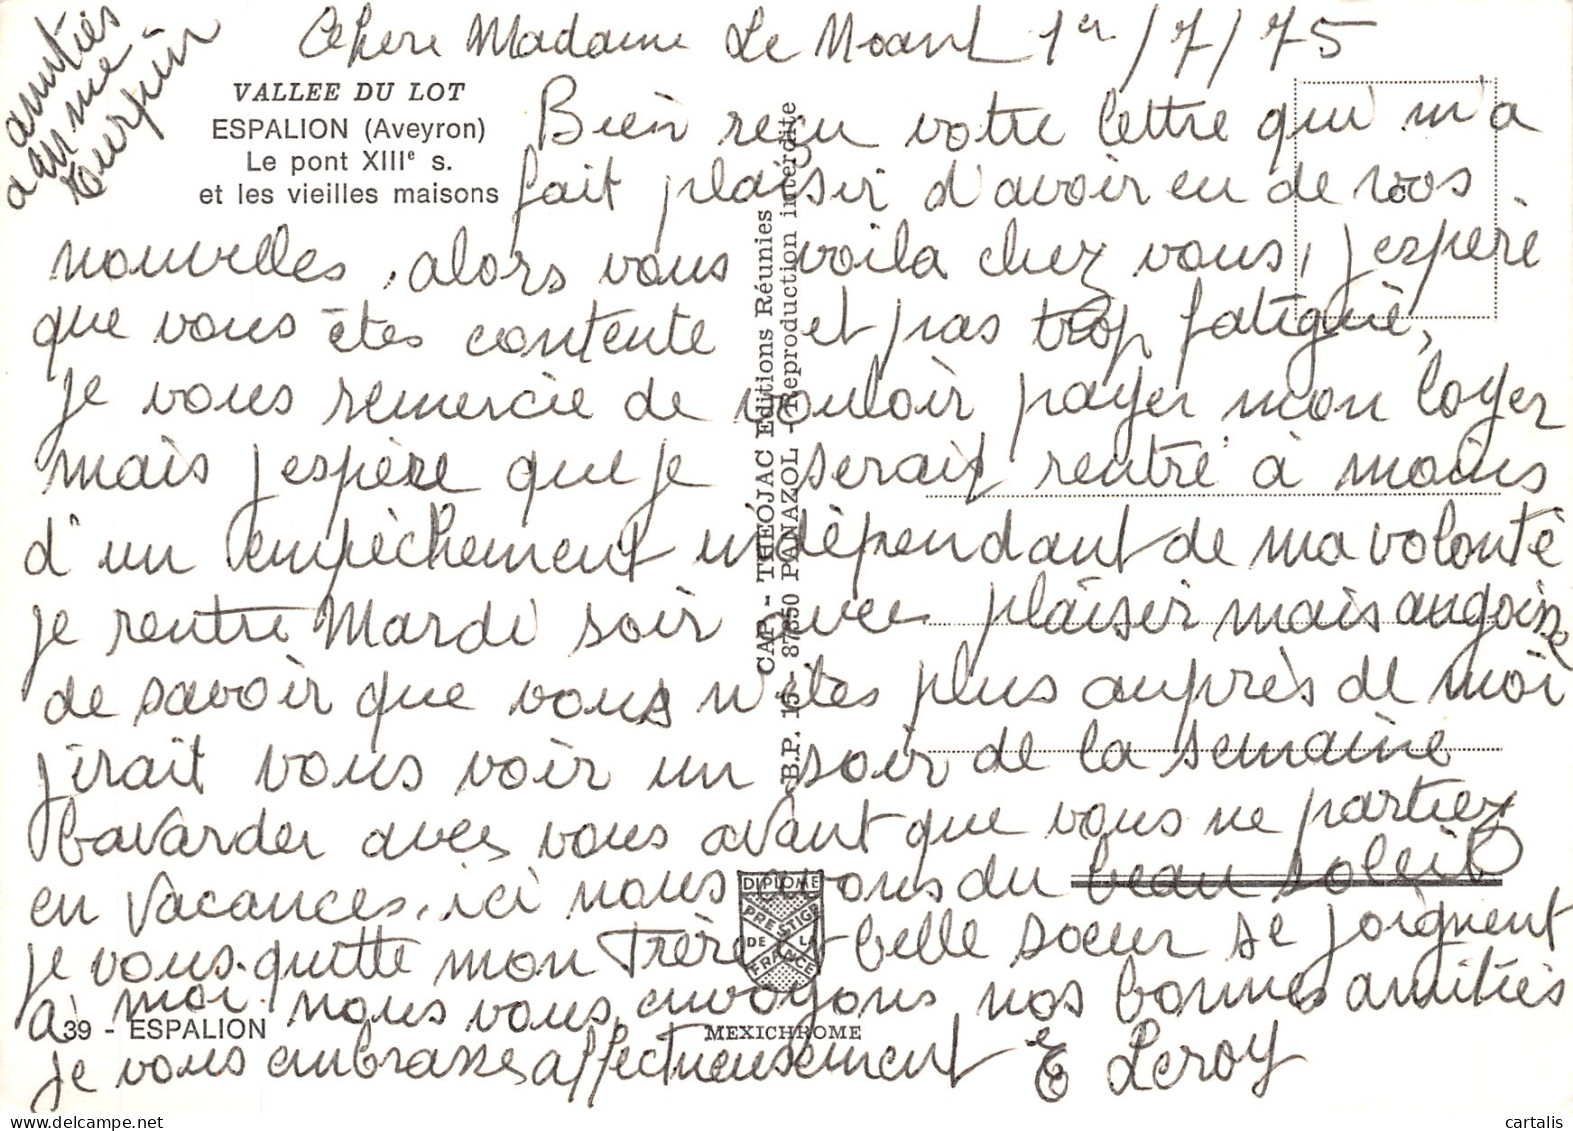 amitiés
a Mme
Turpin
Chere Madame Le Moanl 1er/7/75
VALLEE DU LOT
ESPALION (Aveyron)
Le pont XIIIe s.
et les vieilles maisons
Bien reçu votre lettre qui m'a
fait plaisir d'avoir eu de vos
nouvelles, alors vous voila chez vous, j'espère
que vous êtes contente et pas trop fatiguè,
je vous remercie de vouloir payer mon loyer
mais j'espère que je serait rentré à moins
d'un empèchement indépendant de ma volonté
je rentre Mardi soir avec plaisir mais angoisse
de savoir que vous n'êtes plus auprès de moi
j'irait vous voir un soir de la semaine
bavarder avec vous avant que vous ne partiez
en vacances, ici nous avons du beau soleil
je vous quitte mon frère et belle soeur se joignent
à moi nous vous envoyons nos bonnes amitiés
je vous embrasse affectueusement E Leroy
CAP - THEOJAC Editions Réunies
B.P. 15 - 87350 PANAZOL - Reproduction interdite
DIPLOME
PRESTIGE
DE LA
FRANCE
MEXICHROME
39 - ESPALION
delcampe.net
cartalis